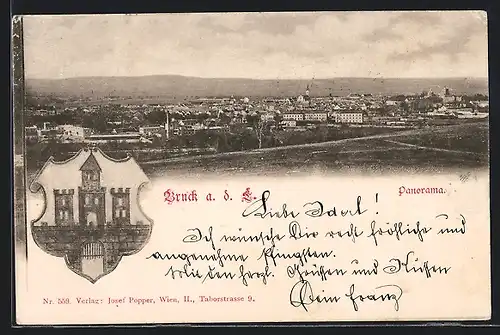 Bruck a. d. L.
Panorama.
Liebe Idarl!
Ich wünsche Dir recht fröhliche und
angenehme Pfingsten.
Mit den herzl. Grüßen und Küssen
Dein Franz
Nr. 559. Verlag: Josef Popper, Wien, II., Taborstrasse 9.